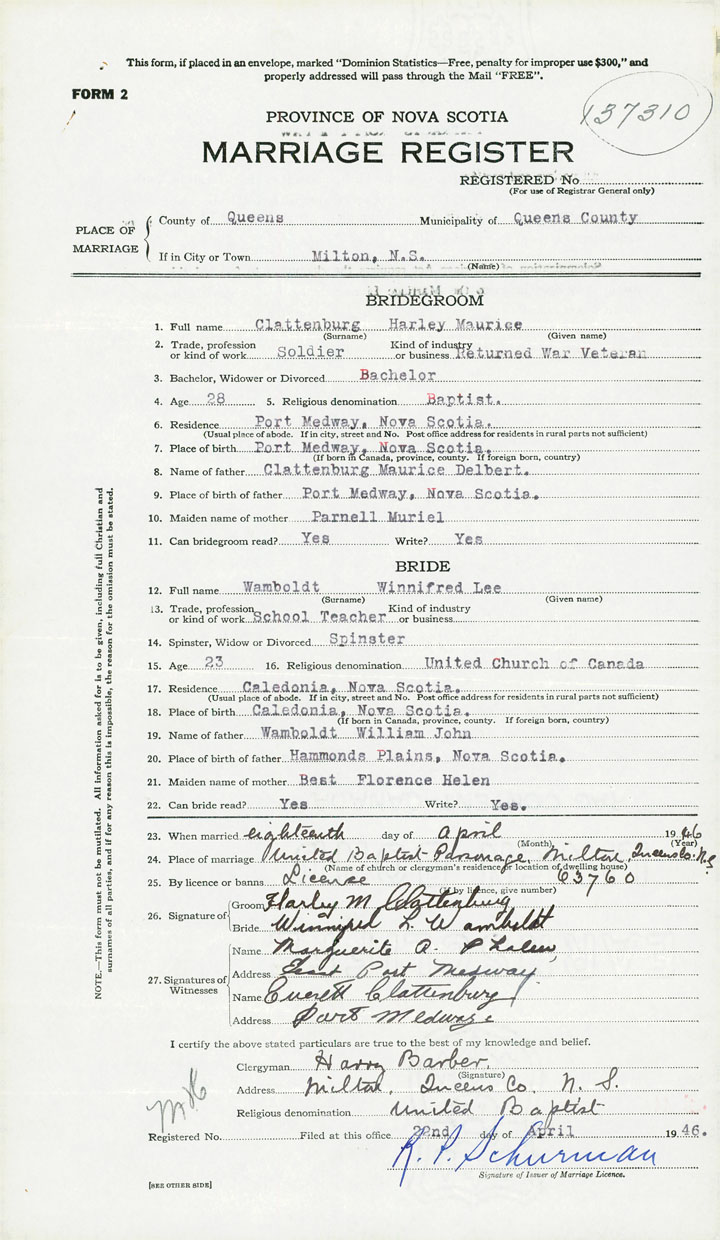 This form, if placed in an envelope, marked “Dominion Statistics—Free, penalty for improper use $300,” and
properly addressed will pass through the Mail “FREE”.
FORM 2
137310
PROVINCE OF NOVA SCOTIA
MARRIAGE REGISTER
REGISTERED No
(For use of Registrar General only)
PLACE OF MARRIAGE
County of Queens Municipality of Queens County
If in City or Town Milton, N.S.
(Name)
BRIDEGROOM
1. Full name Clattenburg Harley Maurice
(Surname) (Given name)
2. Trade, profession or kind of work Soldier Kind of industry or business Returned War Veteran
3. Bachelor, Widower or Divorced Bachelor
4. Age 28 5. Religious denomination Baptist.
6. Residence Port Medway, Nova Scotia.
(Usual place of abode. If in city, street and No. Post office address for residents in rural parts not sufficient)
7. Place of birth Port Medway, Nova Scotia.
(If born in Canada, province, county. If foreign born, country)
8. Name of father Clattenburg Maurice Delbert.
9. Place of birth of father Port Medway, Nova Scotia.
10. Maiden name of mother Parnell Muriel
11. Can bridegroom read? Yes Write? Yes
BRIDE
12. Full name Wamboldt Winnifred Lee
(Surname) (Given name)
13. Trade, profession or kind of work School Teacher Kind of industry or business
14. Spinster, Widow or Divorced Spinster
15. Age 23 16. Religious denomination United Church of Canada
17. Residence Caledonia, Nova Scotia.
(Usual place of abode. If in city, street and No. Post office address for residents in rural parts not sufficient)
18. Place of birth Caledonia, Nova Scotia.
(If born in Canada, province, county. If foreign born, country)
19. Name of father Wamboldt William John
20. Place of birth of father Hammonds Plains, Nova Scotia.
21. Maiden name of mother Best Florence Helen
22. Can bride read? Yes Write? Yes.
23. When married eighteenth day of April 1946
(Month) (Year)
24. Place of marriage United Baptist Parsonage, Milton, Queens Co. N.S
(Name of church or clergyman's residence or location of dwelling house)
25. By licence or banns License 63760
(If by licence, give number)
26. Signature of
Groom Harley M Clattenburg
Bride Winnifred L. Wamboldt
27. Signatures of Witnesses
Name Marguerite A.
Address East Port Medway
Name Everett Clattenburg
Address Port Medway
I certify the above stated particulars are true to the best of my knowledge and belief.
Clergyman Harry Barber,
(Signature)
Address Milton, Queens Co. N. S.
Religious denomination United Baptist
Registered No. Filed at this office 22nd day of April 1946.
R. P. Schurman
Signature of Issuer of Marriage Licence.
[SEE OTHER SIDE]
NOTE.—This form must not be mutilated. All information asked for is to be given, including full Christian and
surnames of all parties, and if for any reason this is impossible, the reason for the omission must be stated.